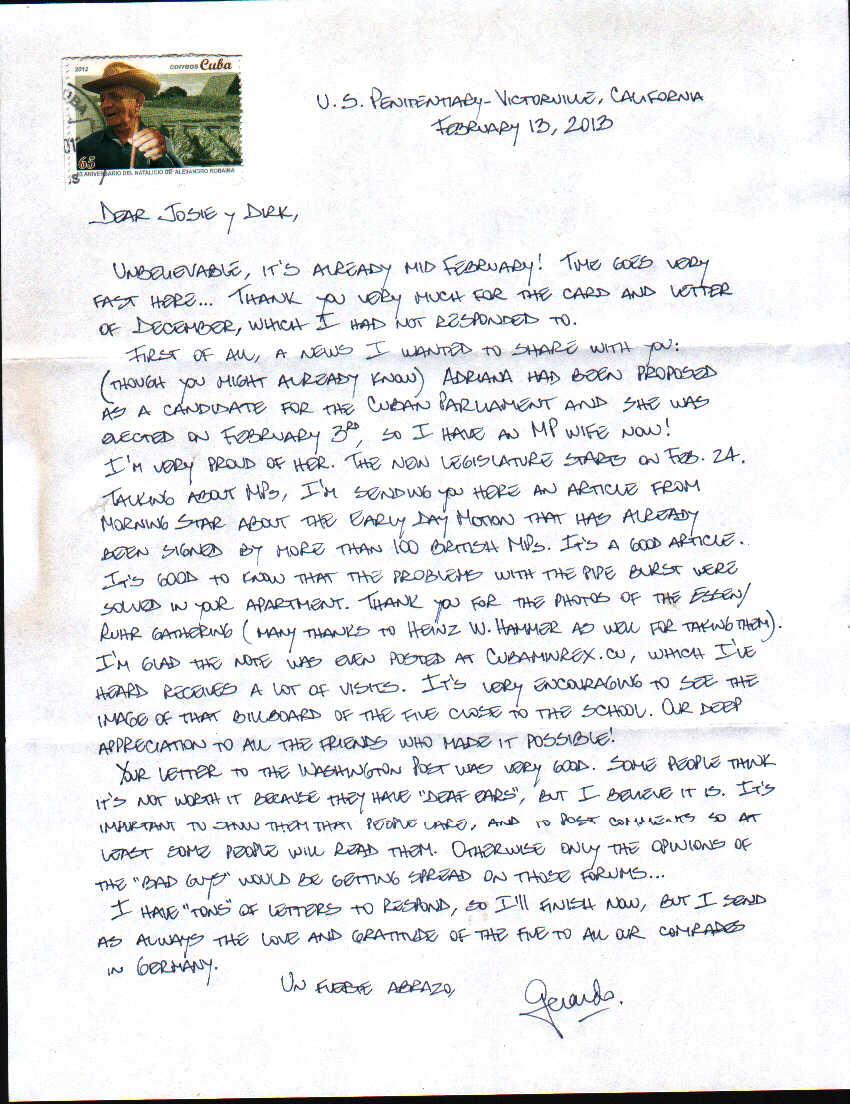 2012 correos Cuba
65
ANIVERSARIO DEL NATALICIO DE ALEJANDRO ROBAINA
U.S. PENITENTIARY-VICTORVILLE, CALIFORNIA
FEBRUARY 13, 2013
DEAR JOSIE y DIRK,
UNBELIEVABLE, IT'S ALREADY MID FEBRUARY! TIME GOES VERY
FAST HERE... THANK YOU VERY MUCH FOR THE CARD AND LETTER
OF DECEMBER, WHICH I HAD NOT RESPONDED TO.
FIRST OF ALL, A NEWS I WANTED TO SHARE WITH YOU:
(THOUGH YOU MIGHT ALREADY KNOW) ADRIANA HAD BEEN PROPOSED
AS A CANDIDATE FOR THE CUBAN PARLIAMENT AND SHE WAS
ELECTED ON FEBRUARY 3RD, SO I HAVE AN MP WIFE NOW!
I'M VERY PROUD OF HER. THE NEW LEGISLATURE STARTS ON FEB. 24.
TALKING ABOUT MPS, I'M SENDING YOU HERE AN ARTICLE FROM
MORNING STAR ABOUT THE EARLY DAY MOTION THAT HAS ALREADY
BEEN SIGNED BY MORE THAN 100 BRITISH MPS. IT'S A GOOD ARTICLE.
IT'S GOOD TO KNOW THAT THE PROBLEMS WITH THE PIPE BURST WERE
SOLVED IN YOUR APARTMENT. THANK YOU FOR THE PHOTOS OF THE ESSEN/
RUHR GATHERING (MANY THANKS TO HEINZ W. HAMMER AS WELL FOR TAKING THEM).
I'M GLAD THE NOTE WAS EVEN POSTED AT CUBAMINREX.CU, WHICH I'VE
HEARD RECEIVES A LOT OF VISITS. IT'S VERY ENCOURAGING TO SEE THE
IMAGE OF THAT BILLBOARD OF THE FIVE CLOSE TO THE SCHOOL. OUR DEEP
APPRECIATION TO ALL THE FRIENDS WHO MADE IT POSSIBLE!
YOUR LETTER TO THE WASHINGTON POST WAS VERY GOOD. SOME PEOPLE THINK
IT'S NOT WORTH IT BECAUSE THEY HAVE "DEAF EARS", BUT I BELIEVE IT IS. IT'S
IMPORTANT TO SHOW THEM THAT PEOPLE CARE, AND TO POST COMMENTS SO AT
LEAST SOME PEOPLE WILL READ THEM. OTHERWISE ONLY THE OPINIONS OF
THE "BAD GUYS" WOULD BE GETTING SPREAD ON THOSE FORUMS...
I HAVE "TONS" OF LETTERS TO RESPOND, SO I'LL FINISH NOW, BUT I SEND
AS ALWAYS THE LOVE AND GRATITUDE OF THE FIVE TO ALL OUR COMRADES
IN GERMANY.
UN FUERTE ABRAZO,
Gerardo.